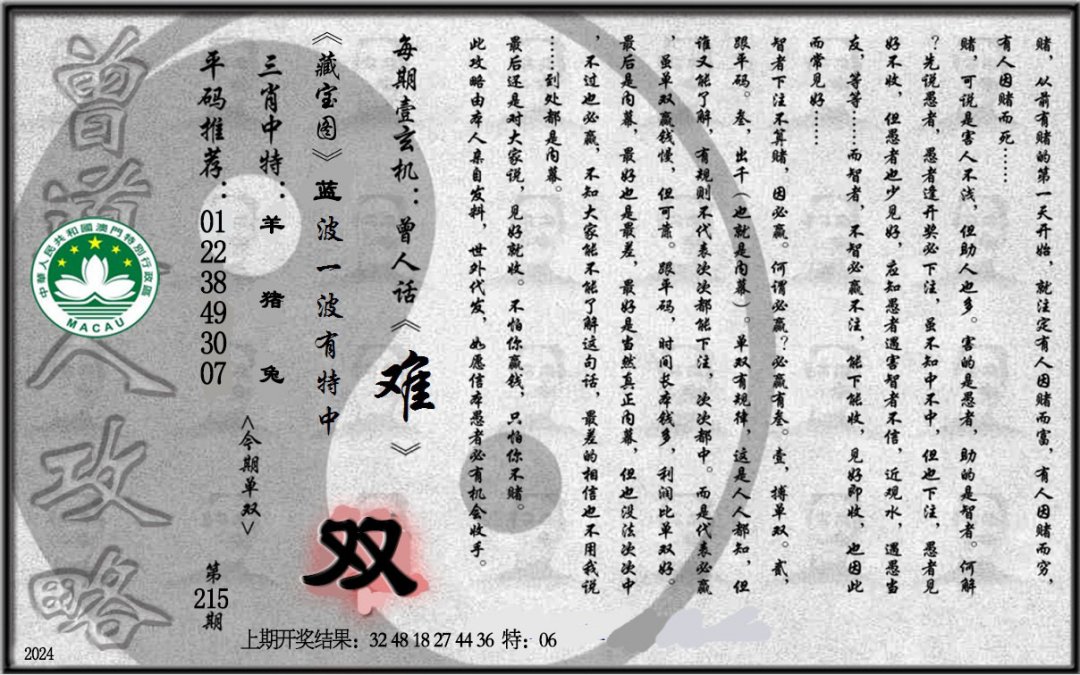 赌，从前有赌的第一天开始，就注定有人因赌而富，有人因赌而穷，
有人因赌而死……
赌，可说是害人不浅，但助人也多。害的是愚者，助的是智者。何解
？先说愚者，愚者逢开奖必下注，虽不知中不中，但也下注，愚者见
好不收，但愚者也少见好，应知愚者遇害智者不信，近观水，遇愚当
友，等等……而智者，不智必赢不注，能下能收，见好即收，也因此
而常见好……
智者下注不算赌，因必赢。何谓必赢？必赢有叁。壹，搏单双。贰，
跟平码。叁，出千（也就是内幕）。单双有规律，这是人人都知，但
谁又能了解，有规则不代表次次都能下注，次次都中。而是代表必赢
，虽单双赢钱慢，但可靠。跟平码，时间长本钱多，利润比单双好。
最后是内幕，最好也是最差，最好是当然真正内幕，但也没法次次中
，不过也必赢，不知大家能不能了解这句话，最差的相信也不用我说
……到处都是内幕。
最后还是对大家说，见好就收。不怕你赢钱，只怕你不赌。
此攻略由本人亲自发料，世外代发，如愿信本愚者必有机会收手。
每期壹玄机：曾人话《难》
《藏宝图》蓝波一波有特中
双
三肖中特：羊 猪 兔
<今期单双>
平码推荐：01 22 38 49 30 07
第215期
曾道人攻略
中華人民共和國澳門特別行政區
MACAU
上期开奖结果：32 48 18 27 44 36 特：06
2024